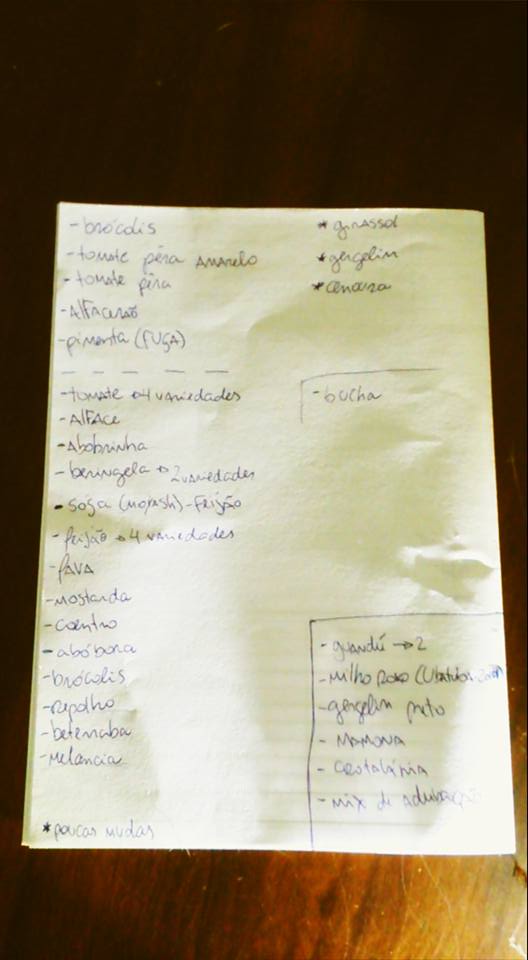 - brócolis
- tomate pêra AMARELO
- tomate pêra
- Alface
- pimenta (FUÇA)
- tomate → 4 variedades
- AlFAce
- Abobrinha
- beringela → 2 variedades
- soja - Feijão
- feijão → 4 variedades
- fAVA
- mostarda
- coentro
- abóbora
- brócolis
- repolho
- beterraba
- Melancia
* poucas mudas
* girassol
* gergelim
* cenoura
- bucha
- guandú → 2
- milho roxo
- gergelim preto
- MAMONA
- crotalária
- mix di adubação